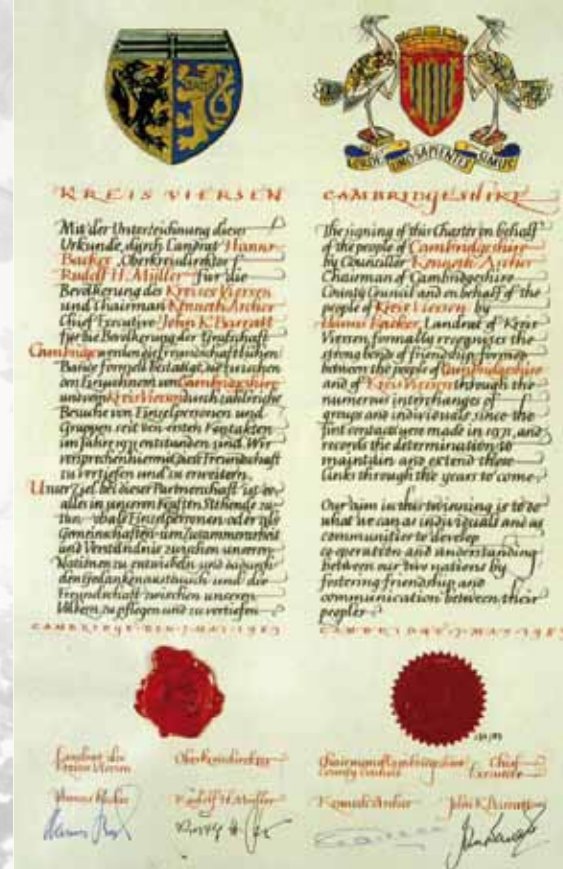 CORDE UNO SAPIENTES SIMUS
KREIS VIERSEN
Mit der Unterzeichnung dieser
Urkunde, durch Landrat Hanns
Backer, Oberkreisdirektor
Rudolf H. Müller für die
Bevölkerung des Kreises Viersen
und Chairman Kenneth Archer
Chief Executive John K. Barratt
für die Bevölkerung der Grafschaft
Cambridge werden die freundschaftlichen
Bande formell bestätigt, die zwischen
den Einwohnern von Cambridgeshire
und vom Kreis Viersen durch zahlreiche
Besuche von Einzelpersonen und
Gruppen seit den ersten Kontakten
im Jahre 1971 entstanden sind. Wir
versprechen hiermit diese Freundschaft
zu vertiefen und zu erweitern.
Unser Ziel bei dieser Partnerschaft ist es
alles in unseren Kräften Stehende zu
tun als Einzelpersonen oder als
Gemeinschaften um Zusammenarbeit
und Verständnis zwischen unseren
Nationen zu entwickeln und dadurch
den Gedankenaustausch und die
Freundschaft zwischen unseren
Völkern zu pflegen und zu vertiefen
CAMBRIDGE DEN 7 MAI 1983
CAMBRIDGESHIRE
The signing of this Charter on behalf
of the people of Cambridgeshire
by Councillor Kenneth Archer
Chairman of Cambridgeshire
County Council and on behalf of the
people of Kreis Viersen by
Hanns Backer, Landrat of Kreis
Viersen formally recognises the
strong bonds of friendship formed
between the people of Cambridgeshire
and of Kreis Viersen through the
numerous interchanges of
groups and individuals since the
first contacts were made in 1971, and
records the determination to
maintain and extend these
links through the years to come.
Our aim in this twinning is to do
what we can as individuals and as
communities to develop
co-operation and understanding
between our two nations by
fostering friendship and
communication between their
peoples
CAMBRIDGE 7 MAY 1983
Landrat des
Kreises Viersen
Oberkreisdirektor
Chairman Cambridgeshire
County Council
Chief
Executive
Hanns Backer
Rudolf H. Müller
Kenneth Archer
John K. Barratt